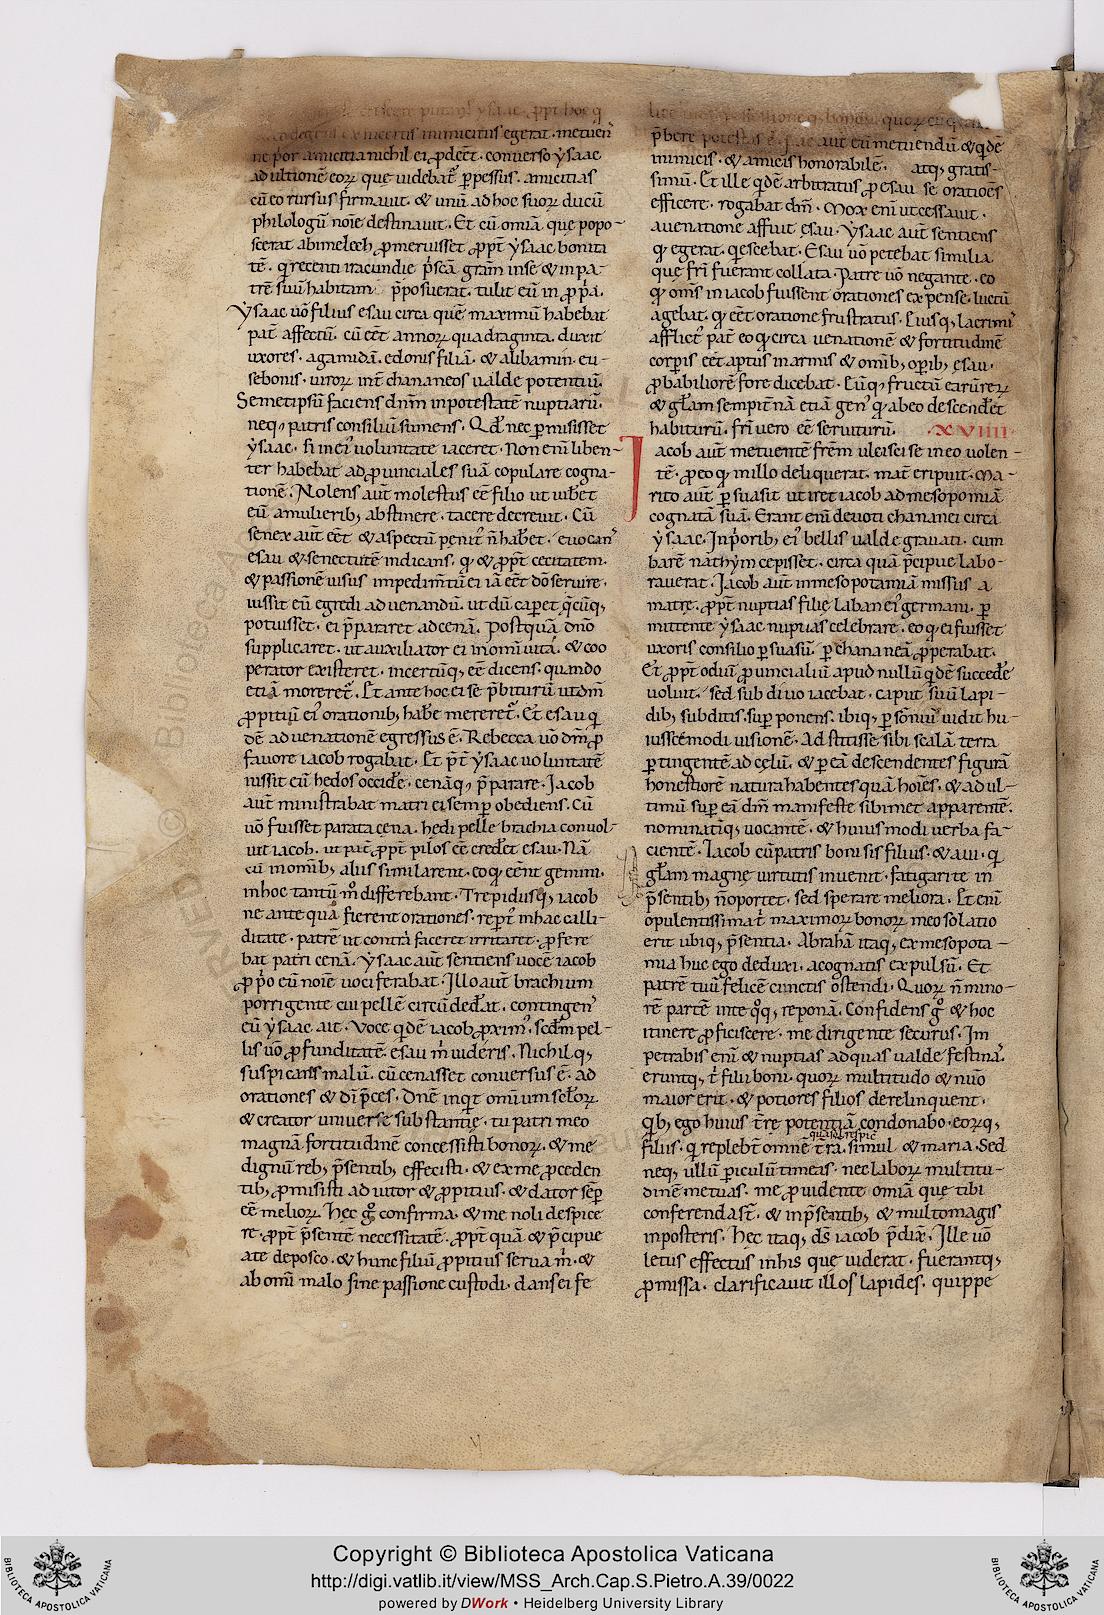 et iecere putaret ysaac. ꝓpt hoc q
degens ex incertis inimicitiis egerat. metuens
ne p̄or amicitia nichil ei ꝓdeēt. converso ẏsaac
ad ultionē eoꝝ que videbat᷑ ꝑpessus. amicitias
cū eo rursus firmavit. & unū ad hoc suoꝝ ducū
philologū noīe destinavit. Et cū omīa. que popo-
scerat abimelech ꝓmeruisset ꝓpt̄ ẏsaac bonita
tē. q̄ recenti iracundie p̄scā grām in se & in pa-
trē suū habitam p̄posuerat. tulit eū in ꝓpͥa.
Ẏsaac uō filius esau circa quē maximū habebat
pat̄ affectū. cū eēt annoꝝ quadraginta. duxit
uxores. agamidā. edonis filiā. & alibamin. eu-
sebonis. viroꝝ int̄ chananeos valde potentiū.
Semetipsū faciens dn̄m in potestatē nuptiarū.
neq; patris consiliū sumens. Qd̄ nec ꝑmisisset
ẏsaac. si in ei᷒ voluntate iaceret. Non enī liben-
ter habebat ad ꝓvinciales suā copulare cogna-
tionē. Nolens aūt molestus eē filio ut iub&et
eū a mulierib; abstinere. tacere decrevit. Cū
senex aūt eēt & aspectū penit᷒ n̄ hab&et. evocans
esau & senectutē indicans. q & ꝓpt̄ cecitatem.
& passionē visus impedim̄tū ei iā eēt dō servire.
iussit eū egredi ad venandū. ut dū cap&et q̄cūq;
potuisset. ei p̄pararet ad cenā. Postquā dn̄o
supplicaret. ut auxiliator ei in om̄i vita. & coo
perator existeret. incertūq; eē dicens. quando
etiā moreret᷑. Et ante hoc ei se p̄biturū ut dm̄
ꝓpitiū ei᷒ orationib; habe mereret᷑. Et esau q
dē ad venationē egressus ē. Rebecca uō dm̄ ꝓ
favore iacob rogabat. Et p̄t̄ ẏsaac voluntatē
iussit eū hedos occidere. cenāq; p̄parare. Jacob
aūt ministrabat matri ei semꝑ obediens. Cū
uō fuisset parata cena. hedi pelle brachia convol-
vit iacob. ut pat̄ ꝓpt̄ pilos eē cred&et esau. Nā
cū in om̄ib; aliis similarent. eo q eēnt gemini.
in hoc tantū m̊ differebant. Trepidusq; iacob
ne ante quā fierent orationes. reꝑt᷒ in hac calli-
ditate. patrē ut contra faceret irritaret. ꝓfere
bat patri cenā. Ẏsaac aūt sentiens vocē iacob
ꝓpͥo eū noīe vociferabat. Illo aūt brachium
porrigente cui pellē circūded&at. contingens
eū ẏsaac ait. Voce qͥdē iacob ꝓxim᷒. sed̄m pel-
lis uō ꝓfunditatē. esau m̄ videris. Nichilq;
suspicans malū. cū cenasset conversus ē. ad
orationes & dī p̄ces. Dn̄e inqͥt omium sēloꝝ
& creator universe substantie. tu patri meo
magnā fortitudinē concessisti bonoꝝ. & me
dignū reb; p̄sentib; effecisti. & ex me ꝓceden
tib; ꝓmisisti adiutor & ꝓpitius. & dator semꝑ
eē melioꝝ. Hęc g̊ confirma. & me noli despice
re. ꝓpt̄ p̄sentē necessitatē. ꝓpt̄ quā & p̄cipue
a te deposco. & hunc filiū ꝓpitius serva m̄. &
ab omī malo sine passione custodi. dans ei fe
lice vitā. & possessionē q; bonoꝝ. quoꝝ
p̄bere potestas ē. Fac aūt eū metuendū. & qͥdē
inimicis. & amicis honorabilē. atq; gratis-
simū. Et ille qͥdē arbitratus ꝓ esau se orationes
efficere. rogabat dm̄. Mox enī ut cessavit.
a venatione affuit esau. Ẏsaac aūt sentiens
q egerat. q̄escebat. Esau uō petebat similia
que frī fuerant collata. Patre uō negante. eo
q om̄s in iacob fuissent orationes expense. luctū
agebat. q eēt oratione frustratus. Cuiusq; lacrimis
afflict᷒ pat̄ eo q circa venationē & fortitudinē
corꝑis eēt aptus in armis & om̄ib; oꝑib; esau.
ꝓbabiliorē fore dicebat. Cūq; fructū earū rerꝝ
& gl̄am sempit̄nā etiā gen᷒ q ab eo descend&et
habiturū. frī vero eē serviturū. ·XVIIII·
Jacob aūt metuentē frēm ulcisci se in eo volen-
tē. ꝓ eo q in illo deliquerat. mat̄ eripuit. Ma-
rito aūt ꝑsuasit ut iret iacob ad mesopomiā
cognatā suā. Erant enī devoti chananei circa
ẏsaac. In pͥorib; ei᷒ bellis valde gravati. cum
barē nathym cepisset. circa quā p̄cipue labo-
raverat. Jacob aūt in mesopotamiā missus a
matre. ꝓpt̄ nuptias filię laban ei᷒ germani. ꝑ
mittente ẏsaac nuptias celebrare. eo q ei fuisset
uxoris consilio ꝑsuasū. ꝑ chananeā ꝓperabat.
Et ꝓpt̄ odiū ꝓvincialiū apud nullū qͥdē succede
voluit. sed sub divo iacebat. caput suū lapi-
dib; subditis. suꝑponens. ibiq; ꝑ somniū vidit hu-
iuscemodi visionē. Adstitisse sibi scalā terra
ꝑtingentē ad cęlū. & ꝑ eā descendentes figurā
honestiorē natura habentes quā hoīes. & ad ul-
timū suꝑ eā dm̄ manifeste sibimet apparentē.
nominatīq; vocantē. & huiusmodi verba fa-
cientē. Iacob cū patris boni sis filius. & avi. q
gl̄am magnę virtutis invenit. fatigari te in
p̄sentib; n̄ oportet. sed sperare meliora. Et enī
opulentissima t̄ maximoꝝ bonoꝝ meo solatio
erit ubiq; p̄sentia. Abrahā itaq; ex mesopota-
mia huc ego deduxi. a cognatis expulsū. Et
patrē tuū felicē cunctis ostendi. Quoꝝ n̄ mino-
rē partē in te qͦq; reponā. Confidens g̊ & hoc
itinere ꝓficiscere. me dirigente securus. Im
petrabis enī & nuptias ad quas valde festinas.
eruntq; t̄ filii boni. quoꝝ multitudo & nuͦo
maior erit. & potiores filios derelinquent.
qͥb; ego huius t̄re potentiā condonabo. eoꝝq;
filiis. q replebt̄ omnē t̄ra. simul & maria. Sed
neq; ullū ꝑiculū timeas. nec laboꝝ multitu-
dinē metuas. me ꝓvidente omīa que tibi
conferenda sn̄t. & in p̄sentib; & multo magis
in posteris. Hęc itaq; ds̄ iacob p̄dix̄. Ille uō
letus effectus in his que viderat. fuerantq;
ꝓmissa. clarificavit illos lapides. quippe
Copyright © Biblioteca Apostolica Vaticana
http://digi.vatlib.it/view/MSS_Arch.Cap.S.Pietro.A.39/0022
powered by DWork • Heidelberg University Library